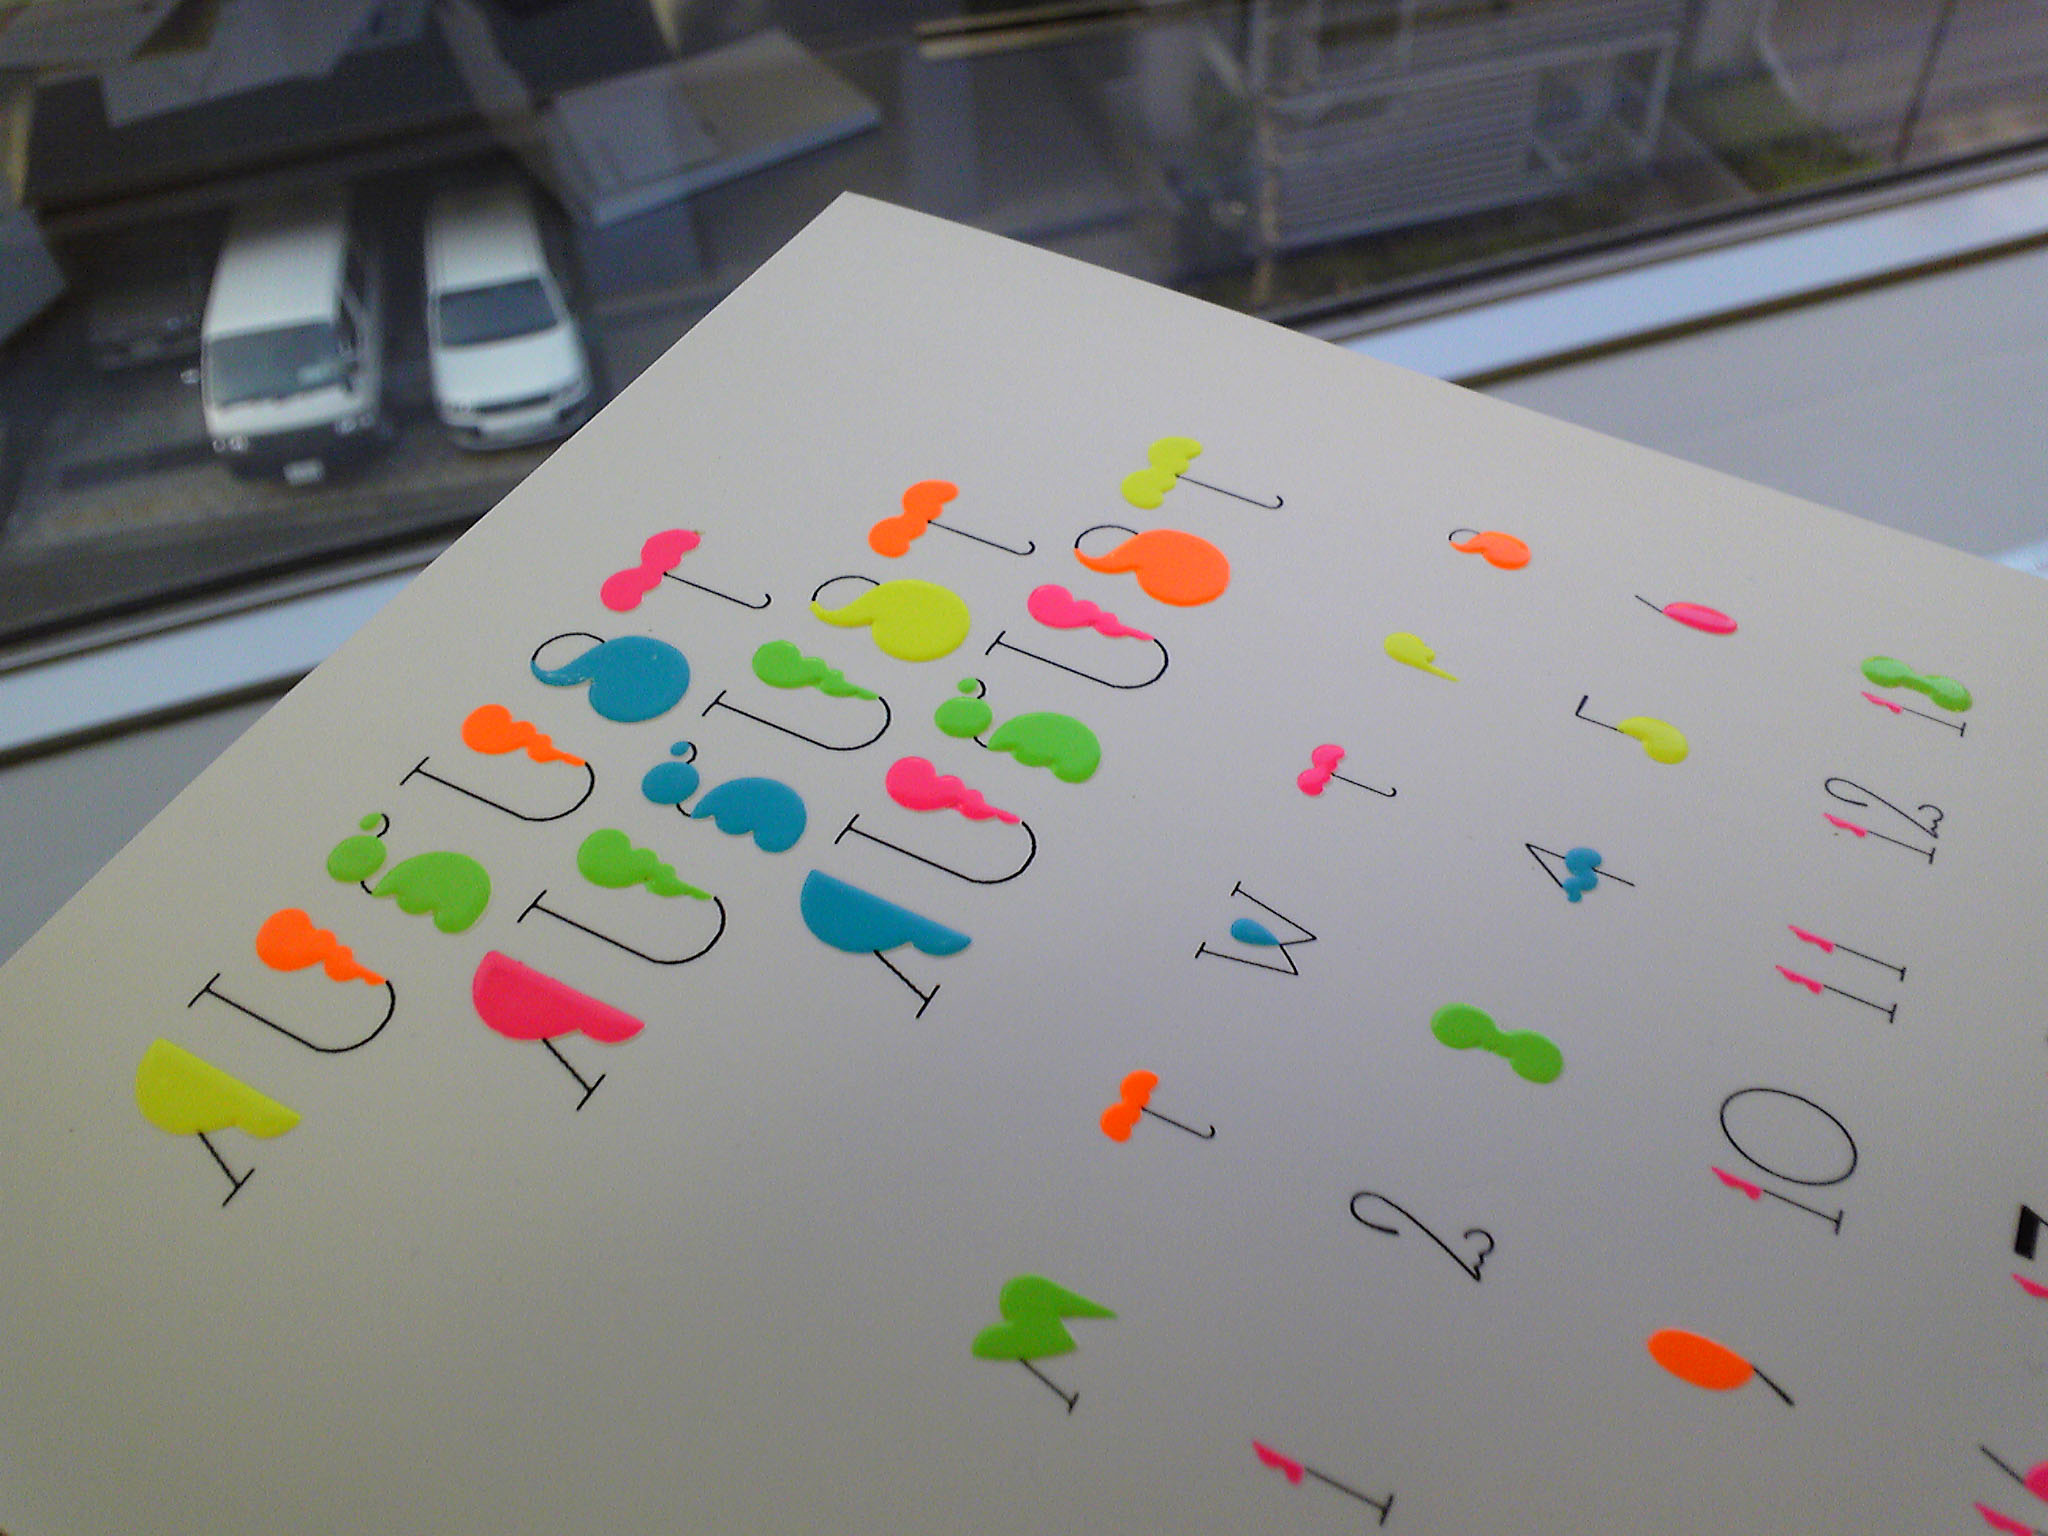 AUGUST
AUGUST
AUGUST
M T W T F S
1 2 3 4 5 6
9 10 11 12 13